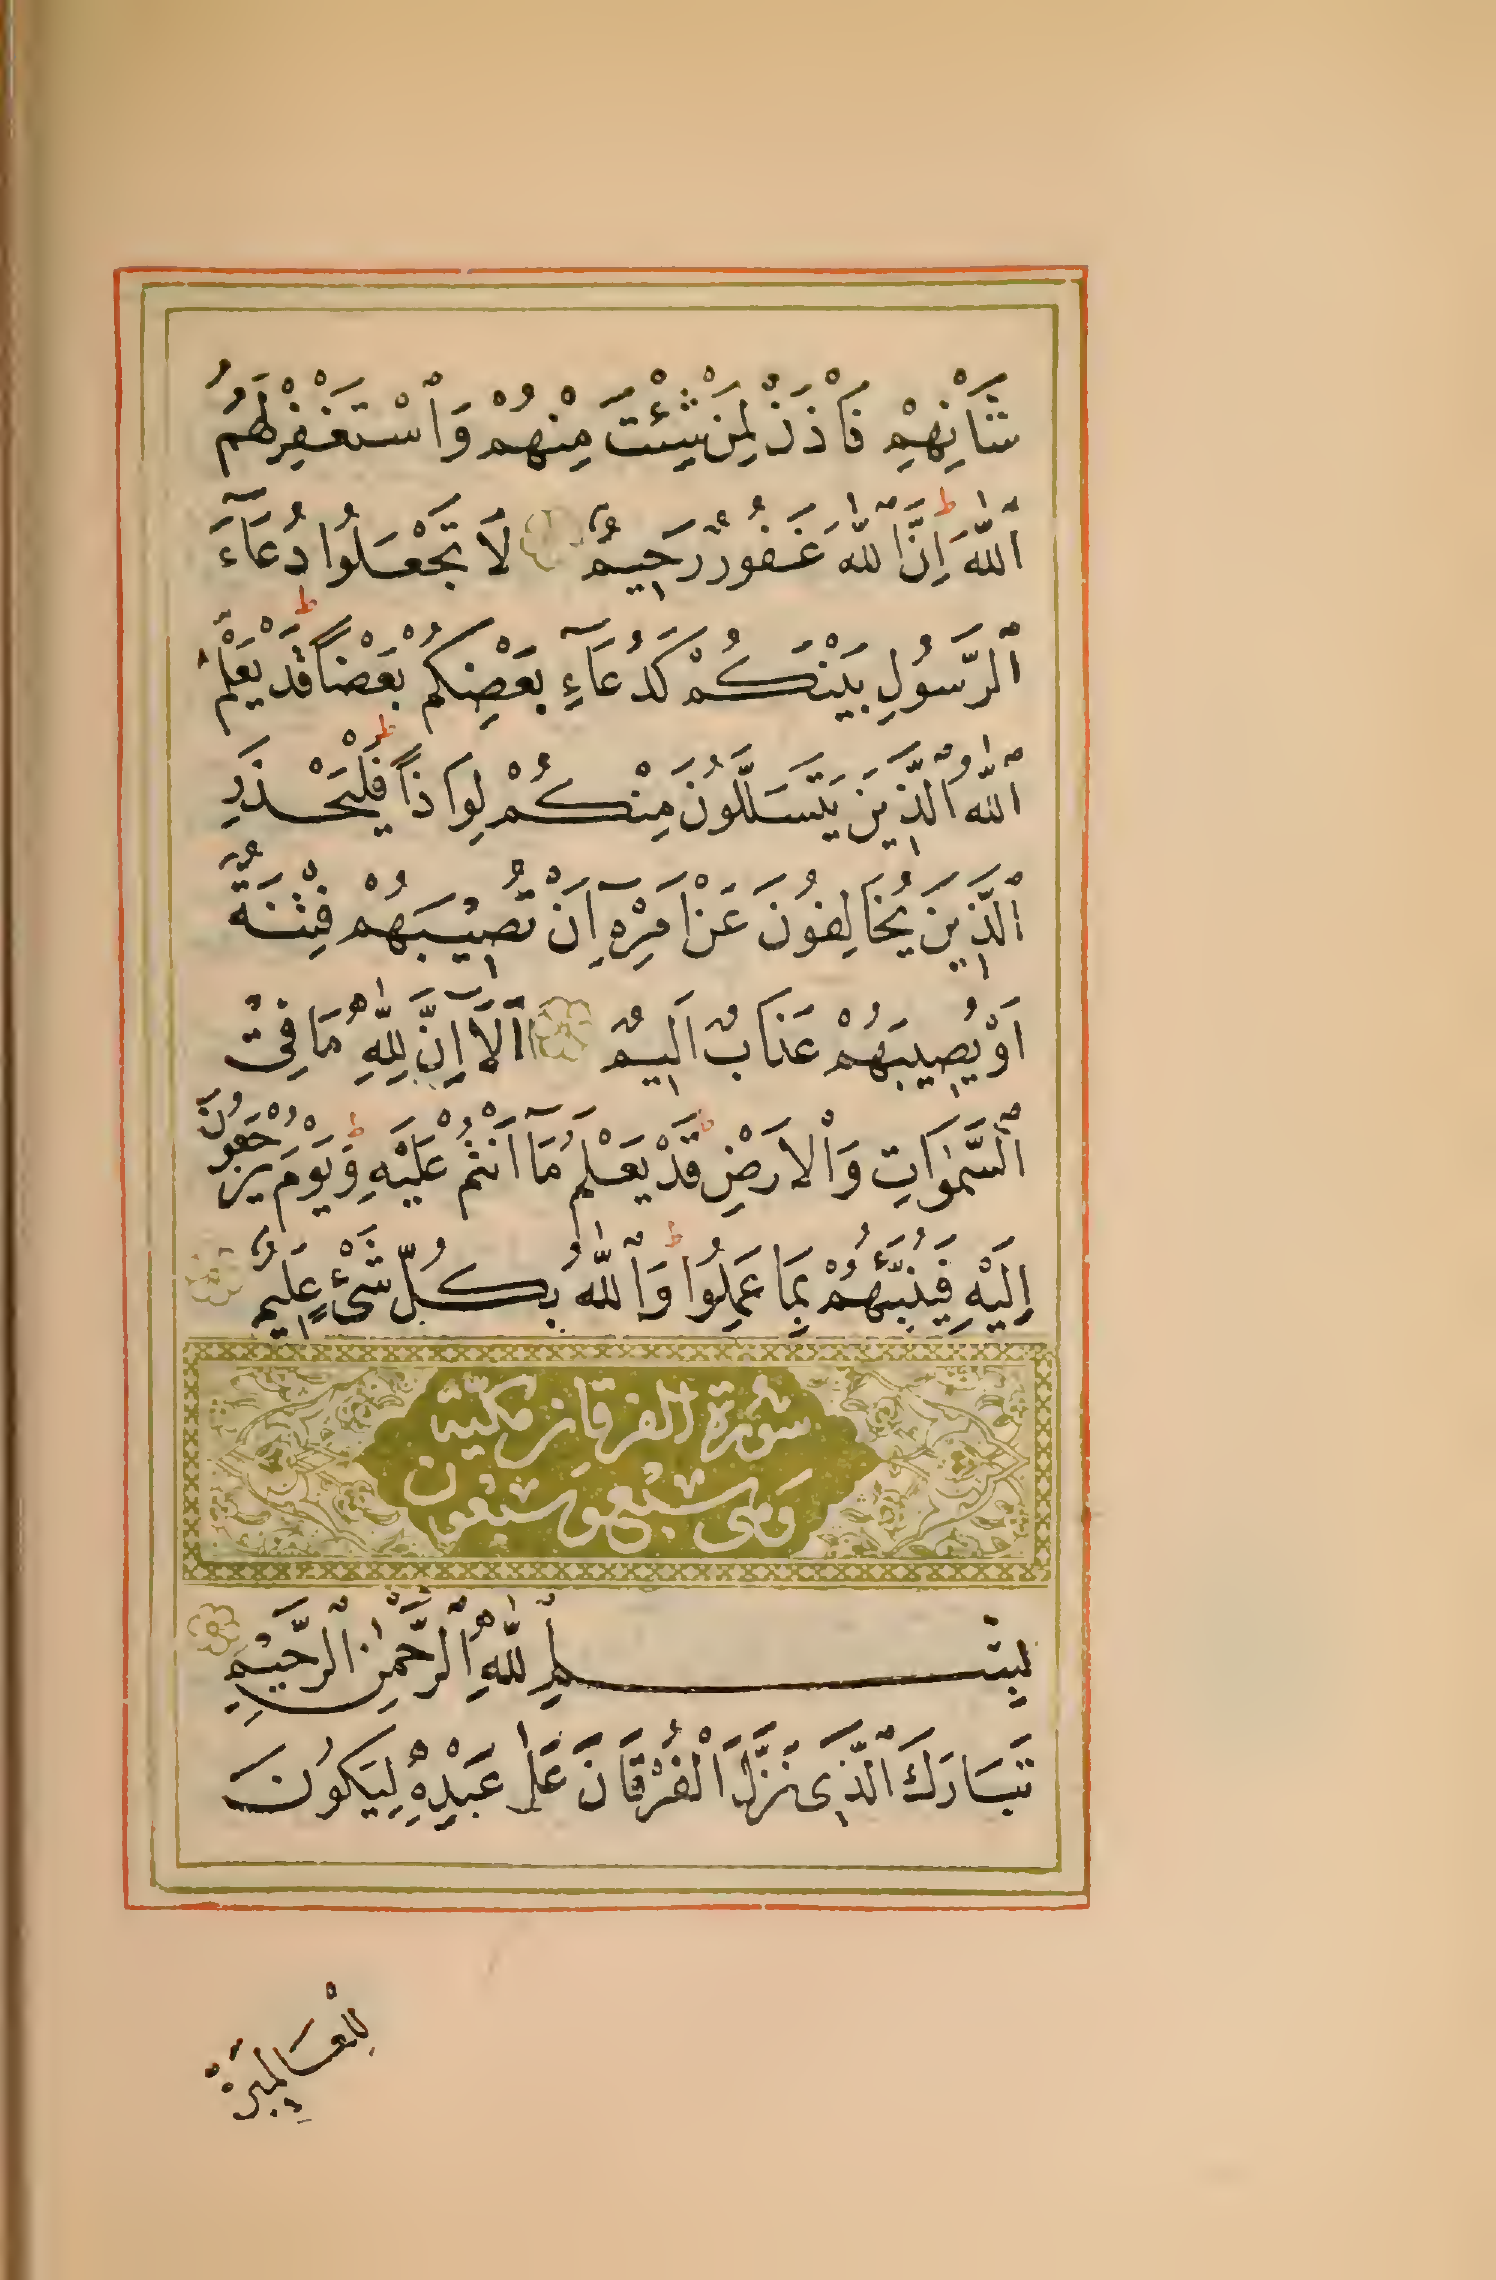 شَأْنِهِمْ فَأْذَنْ لِمَنْ شِئْتَ مِنْهُمْ وَٱسْتَغْفِرْ لَهُمُ
ٱللّٰهَ ط اِنَّ ٱللّٰهَ غَفُورٌ رَحِيمٌ لَا تَجْعَلُوا دُعَآءَ
ٱلرَّسُولِ بَيْنَكُمْ كَدُعَآءِ بَعْضِكُمْ بَعْضًا ط قَدْ يَعْلَمُ
ٱللّٰهُ ٱلَّذِينَ يَتَسَلَّلُونَ مِنْكُمْ لِوَاذًا ط فَلْيَحْذَرِ
ٱلَّذِينَ يُخَالِفُونَ عَنْ اَمْرِهٖٓ اَنْ تُصِيْبَهُمْ فِتْنَةٌ
اَوْ يُصِيبَهُمْ عَذَابٌ اَلِيمٌ اَلَآ اِنَّ لِلّٰهِ مَا فِي
ٱلسَّمٰوَاتِ وَٱلْاَرْضِ ط قَدْ يَعْلَمُ مَآ اَنْتُمْ عَلَيْهِ ط وَيَوْمَ يُرْجَعُونَ
اِلَيْهِ فَيُنَبِّئُهُمْ بِمَا عَمِلُوا ط وَٱللّٰهُ بِكُلِّ شَيْءٍ عَلِيمٌ
سُورَة الفرقان مكيّة
وَهى سَبْع وَسَبْعون
بِسْمِ ٱللّٰهِ ٱلرَّحْمٰنِ ٱلرَّحِيْمِ
تَبَارَكَ ٱلَّذِى نَزَّلَ ٱلْفُرْقَانَ عَلٰى عَبْدِهٖ لِيَكُونَ
لِلْعَالَمِينَ